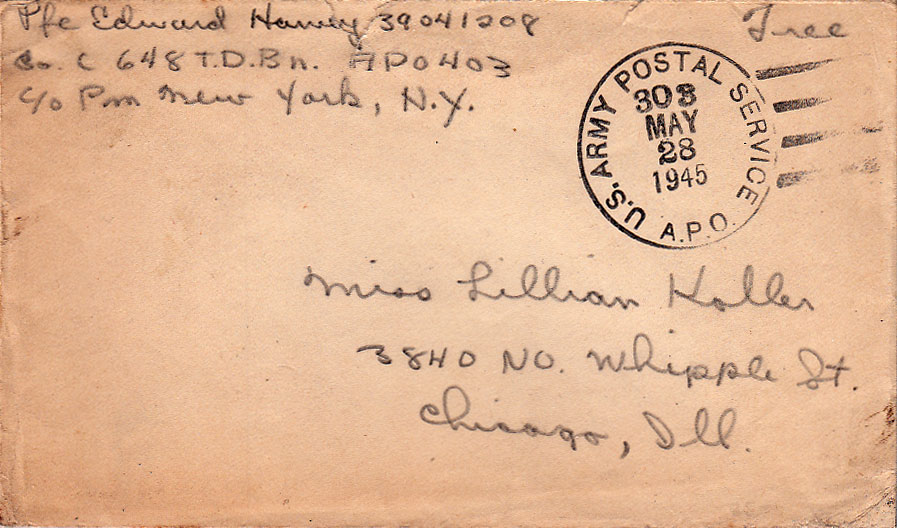 Pfc Edward Harvey 39041208
Co. C 648 T.D.Bn. APO 403
c/o Pm New York, N.Y.
Free
U.S. ARMY POSTAL SERVICE
303
MAY
28
1945
A.P.O.
Miss Lillian Koller
3840 NO. Whipple St.
Chicago, Ill.